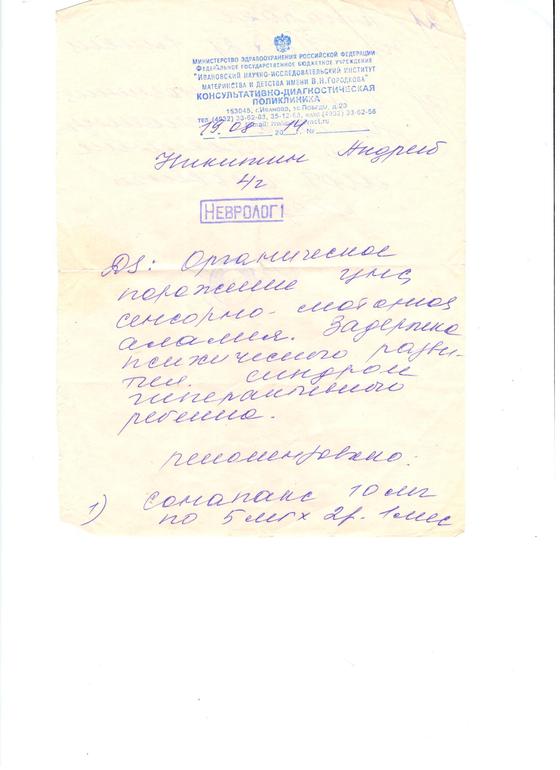 МИНИСТЕРСТВО ЗДРАВООХРАНЕНИЯ РОССИЙСКОЙ ФЕДЕРАЦИИ
ФЕДЕРАЛЬНОЕ ГОСУДАРСТВЕННОЕ БЮДЖЕТНОЕ УЧРЕЖДЕНИЕ
"ИВАНОВСКИЙ НАУЧНО-ИССЛЕДОВАТЕЛЬСКИЙ ИНСТИТУТ
МАТЕРИНСТВА И ДЕТСТВА ИМЕНИ В.Н.ГОРОДКОВА"
КОНСУЛЬТАТИВНО-ДИАГНОСТИЧЕСКАЯ
ПОЛИКЛИНИКА
153045, г.Иваново, ул.Победы, д.20
тел.(4932) 33-62-63, 35-12-63, факс(4932) 33-62-56
19.08 2014 г. №
Никитин Андрей
4г
НЕВРОЛОГ
DS: Органическое
поражение ЦНС,
сенсорно-моторная
алалия. Задержка
психического разви-
тия. синдром
гиперактивного
ребенка.
рекомендовано:
1) сонапакс 10 мг
по 5 мг х 2р. 1 мес